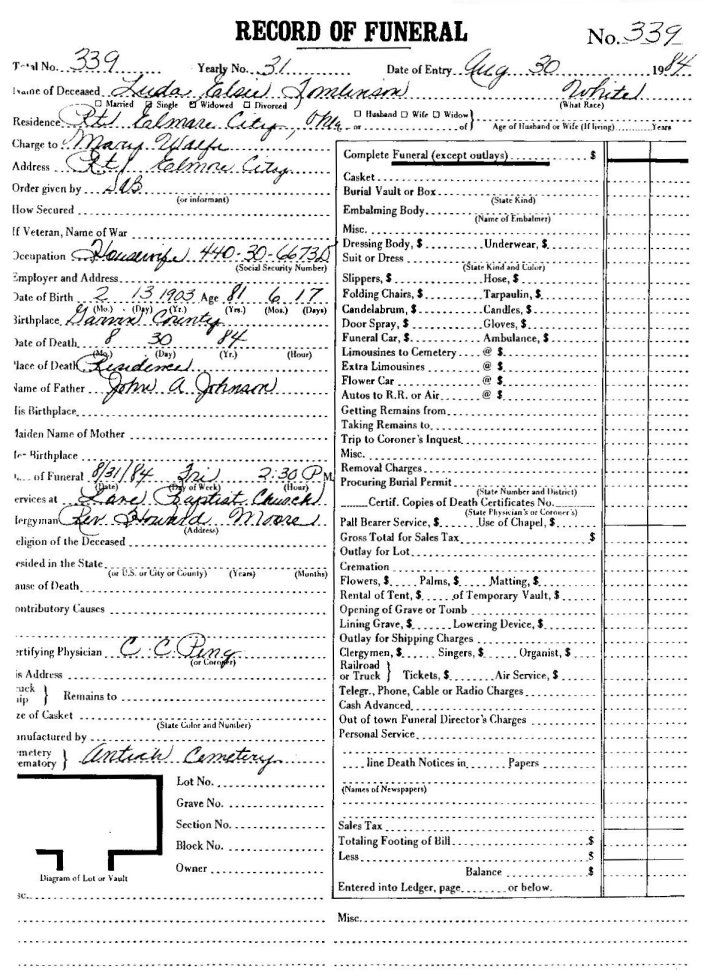 RECORD OF FUNERAL
No. 339
Total No. 339 Yearly No. 31 Date of Entry Aug 30 1984
Name of Deceased Elsie Tomlinson White
☐ Married ☐ Single ☑ Widowed ☐ Divorced (What Race)
Residence Rt 1 Elmore City, Okla ☐ Husband ☐ Wife ☐ Widow } or of Age of Husband or Wife (If living) Years
Charge to Mary Wolfe
Address Rt 1 Elmore City
Order given by
(or informant)
How Secured
If Veteran, Name of War
Occupation Housewife 440-30-6673D
(Social Security Number)
Employer and Address
Date of Birth 2 13 1903 Age 81 6 17
(Mo.) (Day) (Yr.) (Yrs.) (Mos.) (Days)
Birthplace Garvin County
Date of Death 8 30 84
(Mo.) (Day) (Yr.) (Hour)
Place of Death Residence
Name of Father John A Johnson
His Birthplace
Maiden Name of Mother
Her Birthplace
of Funeral 8/31/84 Fri 2:30 P M.
(Date) (Day of Week) (Hour)
ervices at Baptist Church
lergyman Rev. Howard Moore
(Address)
eligion of the Deceased
esided in the State
(or U.S. or City or County) (Years) (Months)
ause of Death
ontributory Causes
ertifying Physician C. C. Ping
(or Coroner)
is Address
ruck
hip } Remains to
ze of Casket
(State Color and Number)
anufactured by
metery
ematory } Antioch Cemetery
Lot No.
Grave No.
Section No.
Block No.
Owner
Diagram of Lot or Vault
Complete Funeral (except outlays) $
Casket
Burial Vault or Box
(State Kind)
Embalming Body
(Name of Embalmer)
Misc.
Dressing Body, $ Underwear, $
Suit or Dress
(State Kind and Color)
Slippers, $ Hose, $
Folding Chairs, $ Tarpaulin, $
Candelabrum, $ Candles, $
Door Spray, $ Gloves, $
Funeral Car, $ Ambulance, $
Limousines to Cemetery @ $
Extra Limousines @ $
Flower Car @ $
Autos to R.R. or Air @ $
Getting Remains from
Taking Remains to
Trip to Coroner's Inquest
Misc.
Removal Charges
Procuring Burial Permit
(State Number and District)
Certif. Copies of Death Certificates No.
(State Physician's or Coroner's)
Pall Bearer Service, $ Use of Chapel, $
Gross Total for Sales Tax $
Outlay for Lot
Cremation
Flowers, $ Palms, $ Matting, $
Rental of Tent, $ of Temporary Vault, $
Opening of Grave or Tomb
Lining Grave, $ Lowering Device, $
Outlay for Shipping Charges
Clergymen, $ Singers, $ Organist, $
Railroad
or Truck } Tickets, $ Air Service, $
Telegr., Phone, Cable or Radio Charges
Cash Advanced
Out of town Funeral Director's Charges
Personal Service
line Death Notices in Papers
(Names of Newspapers)
Sales Tax
Totaling Footing of Bill $
Less $
Balance $
Entered into Ledger, page or below.
Misc.